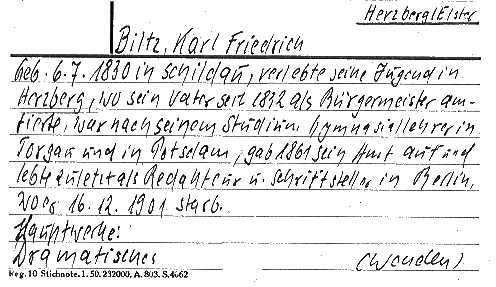 Herzberg/Elster
Biltz, Karl Friedrich
Geb. 6.7. 1830 in Schildau, verlebte seine Jugend in
Herzberg, wo sein Vater seit 1832 als Bürgermeister am-
tierte, war nach seinem Studium Gymnasiallehrer in
Torgau und in Potsdam, gab 1861 sein Amt auf und
lebte zuletzt als Redakteur u. Schriftsteller in Berlin,
wo er 16.12. 1901 starb.
Hauptwerke:
Dramatisches (wenden)
Reg. 10 Stichnote. 1. 50. 232000, A. 803. S. 4662